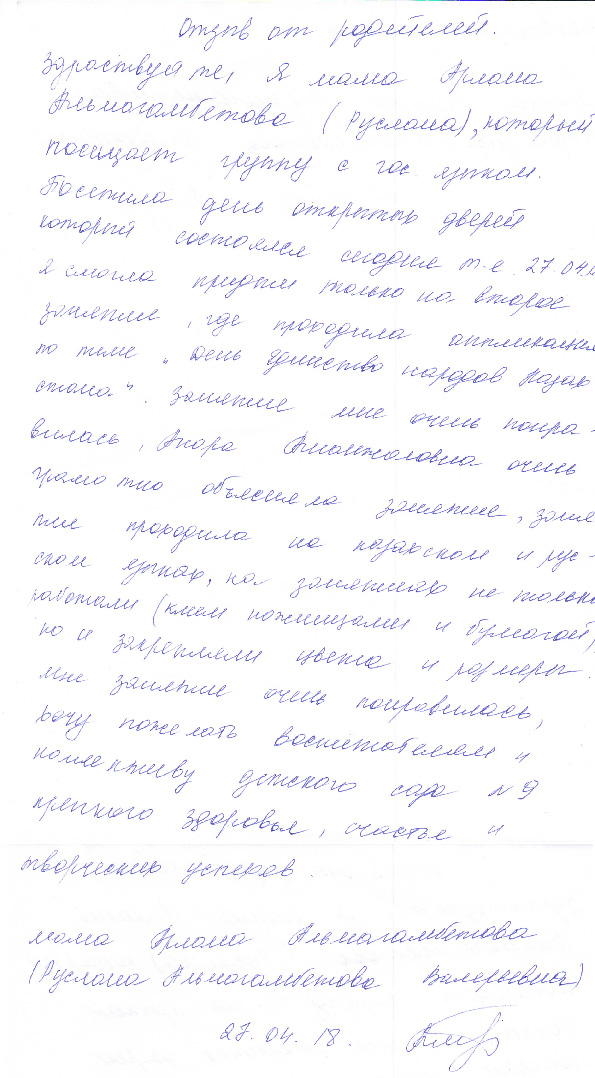 Отзыв от родителей.
Здраствуйте, я мама Арлана
Альмагамбетова (Руслана), который
посищает группу с гос языком.
Посетила день открытых дверей
который состоялся сегодня т.е. 27.04.
я смогла придти только на второе
занятие, где проходила аппликация
по теме „День единство народов Казах
стана". Занятие мне очень понра-
вилась, Амановна очень
грамотно объяснила занятие, заня
тие проходила на казахском и рус-
ском языках, на занятиях не только
работали (клеем ножницами и бумагой),
но и закрепляли цвета и размеры.
мне занятие очень понравилась,
хочу пожелать воспитателям и
коллективу детского сада №9
крепкого здоровья, счастье и
творческих успехов.
мама Арлана Альмагамбетова
(Руслана Альмагамбетова Валерьевна)
27.04.18.